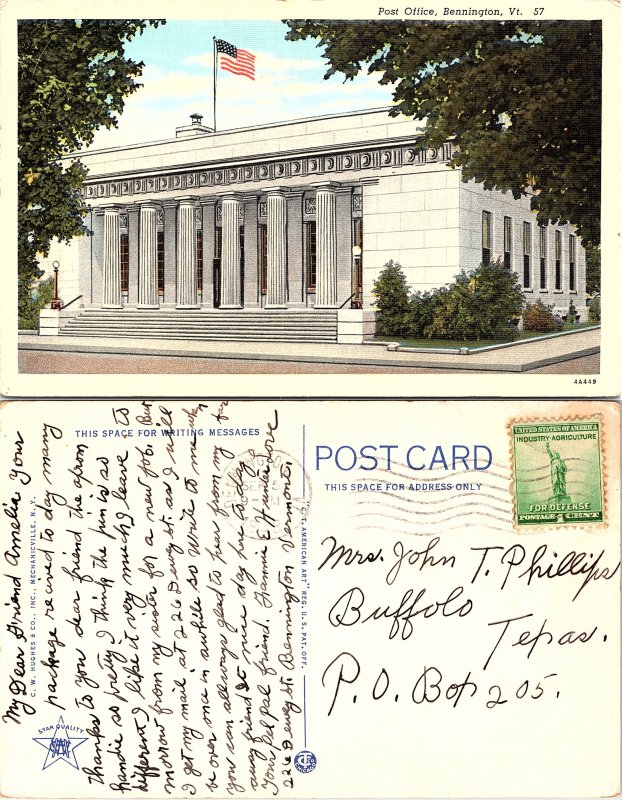 Post Office, Bennington, Vt. 57
4A449
THIS SPACE FOR WRITING MESSAGES
My Dear Friend Amelia your
package recived to day many
Thanks to you dear friend the apron
handie so pretty I thing the pin is so
different I like it very much I leave to
morrow from my sister for a new job. But
I get my mail at 226 Dewey St. as I will
be over once in awhile so write to me
you can allways glad to hear from my
away friend it nice day
Your Pel pal friend. Fannie E
226 Dewey St. Bennington Vermont.
C. W. HUGHES & CO., INC., MECHANICVILLE, N.Y.
STAR QUALITY
"C.T. AMERICAN ART" REG. U.S. PAT. OFF.
POST CARD
THIS SPACE FOR ADDRESS ONLY
UNITED STATES OF AMERICA
INDUSTRY·AGRICULTURE
FOR DEFENSE
POSTAGE 1 CENT
Mrs. John T. Phillips
Buffolo
Texas.
P. O. Box 205.